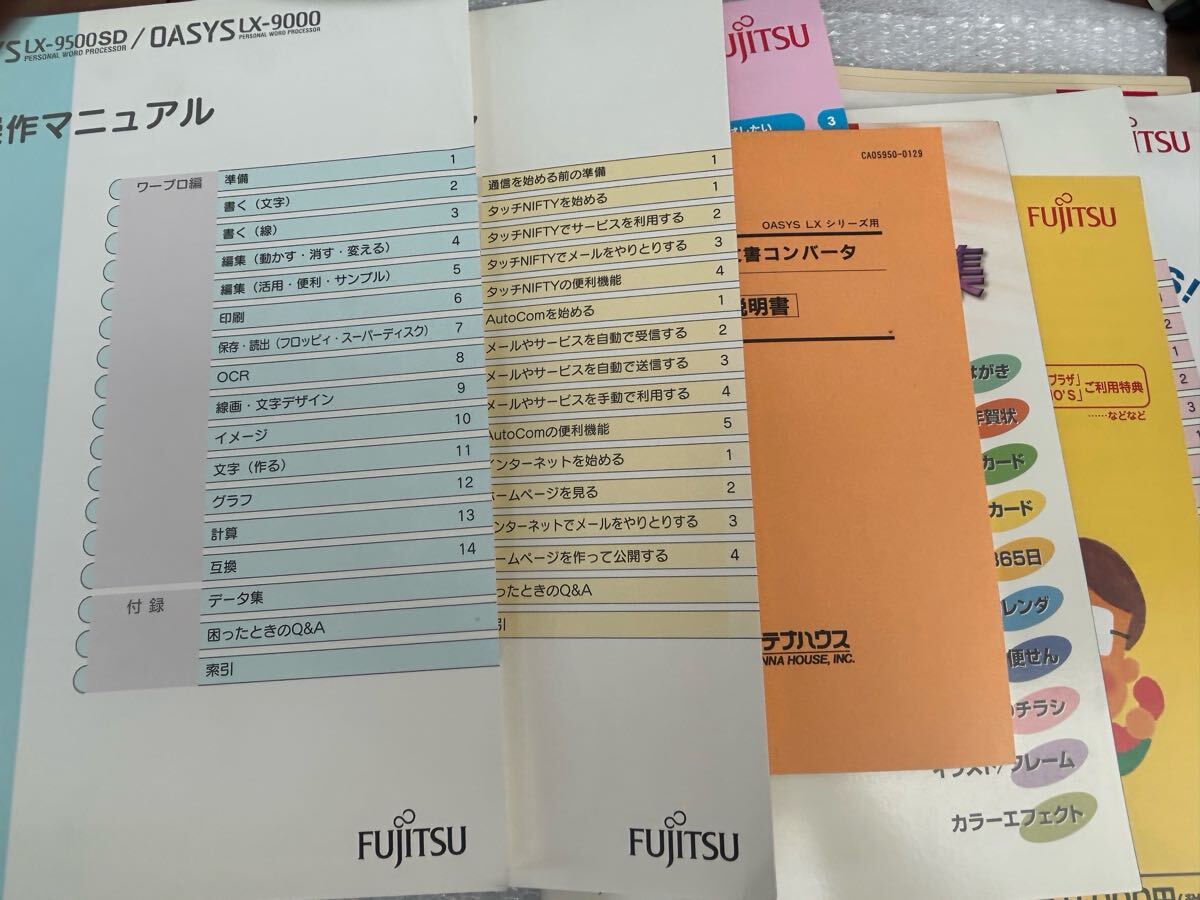 YS LX-9500SD / OASYS LX-9000
PERSONAL WORD PROCESSOR PERSONAL WORD PROCESSOR
操作マニュアル
ワープロ編
準備 1
書く（文字） 2
書く（線） 3
編集（動かす・消す・変える） 4
編集（活用・便利・サンプル） 5
印刷 6
保存・読出（フロッピィ・スーパーディスク） 7
OCR 8
線画・文字デザイン 9
イメージ 10
文字（作る） 11
グラフ 12
計算 13
互換 14
付録
データ集
困ったときのQ&A
索引
FUJITSU
通信を始める前の準備 1
タッチNIFTYを始める 1
タッチNIFTYでサービスを利用する 2
タッチNIFTYでメールをやりとりする 3
タッチNIFTYの便利機能 4
AutoComを始める 1
メールやサービスを自動で受信する 2
メールやサービスを自動で送信する 3
メールやサービスを手動で利用する 4
AutoComの便利機能 5
インターネットを始める 1
ホームページを見る 2
インターネットでメールをやりとりする 3
ホームページを作って公開する 4
ったときのQ&A
引
FUJITSU
FUJITSU
したい 3
CA05950-0129
OASYS LX シリーズ用
書コンバータ
説明書
テナハウス
NNA HOUSE, INC.
集
はがき
年賀状
カード
カード
365日
レンダ
便せん
のチラシ
イラスト/フレーム
カラーエフェクト
FUJITSU
プラザ」
IO'S」
ご利用特典
……などなど
ITSU
S!
2
1
2
3